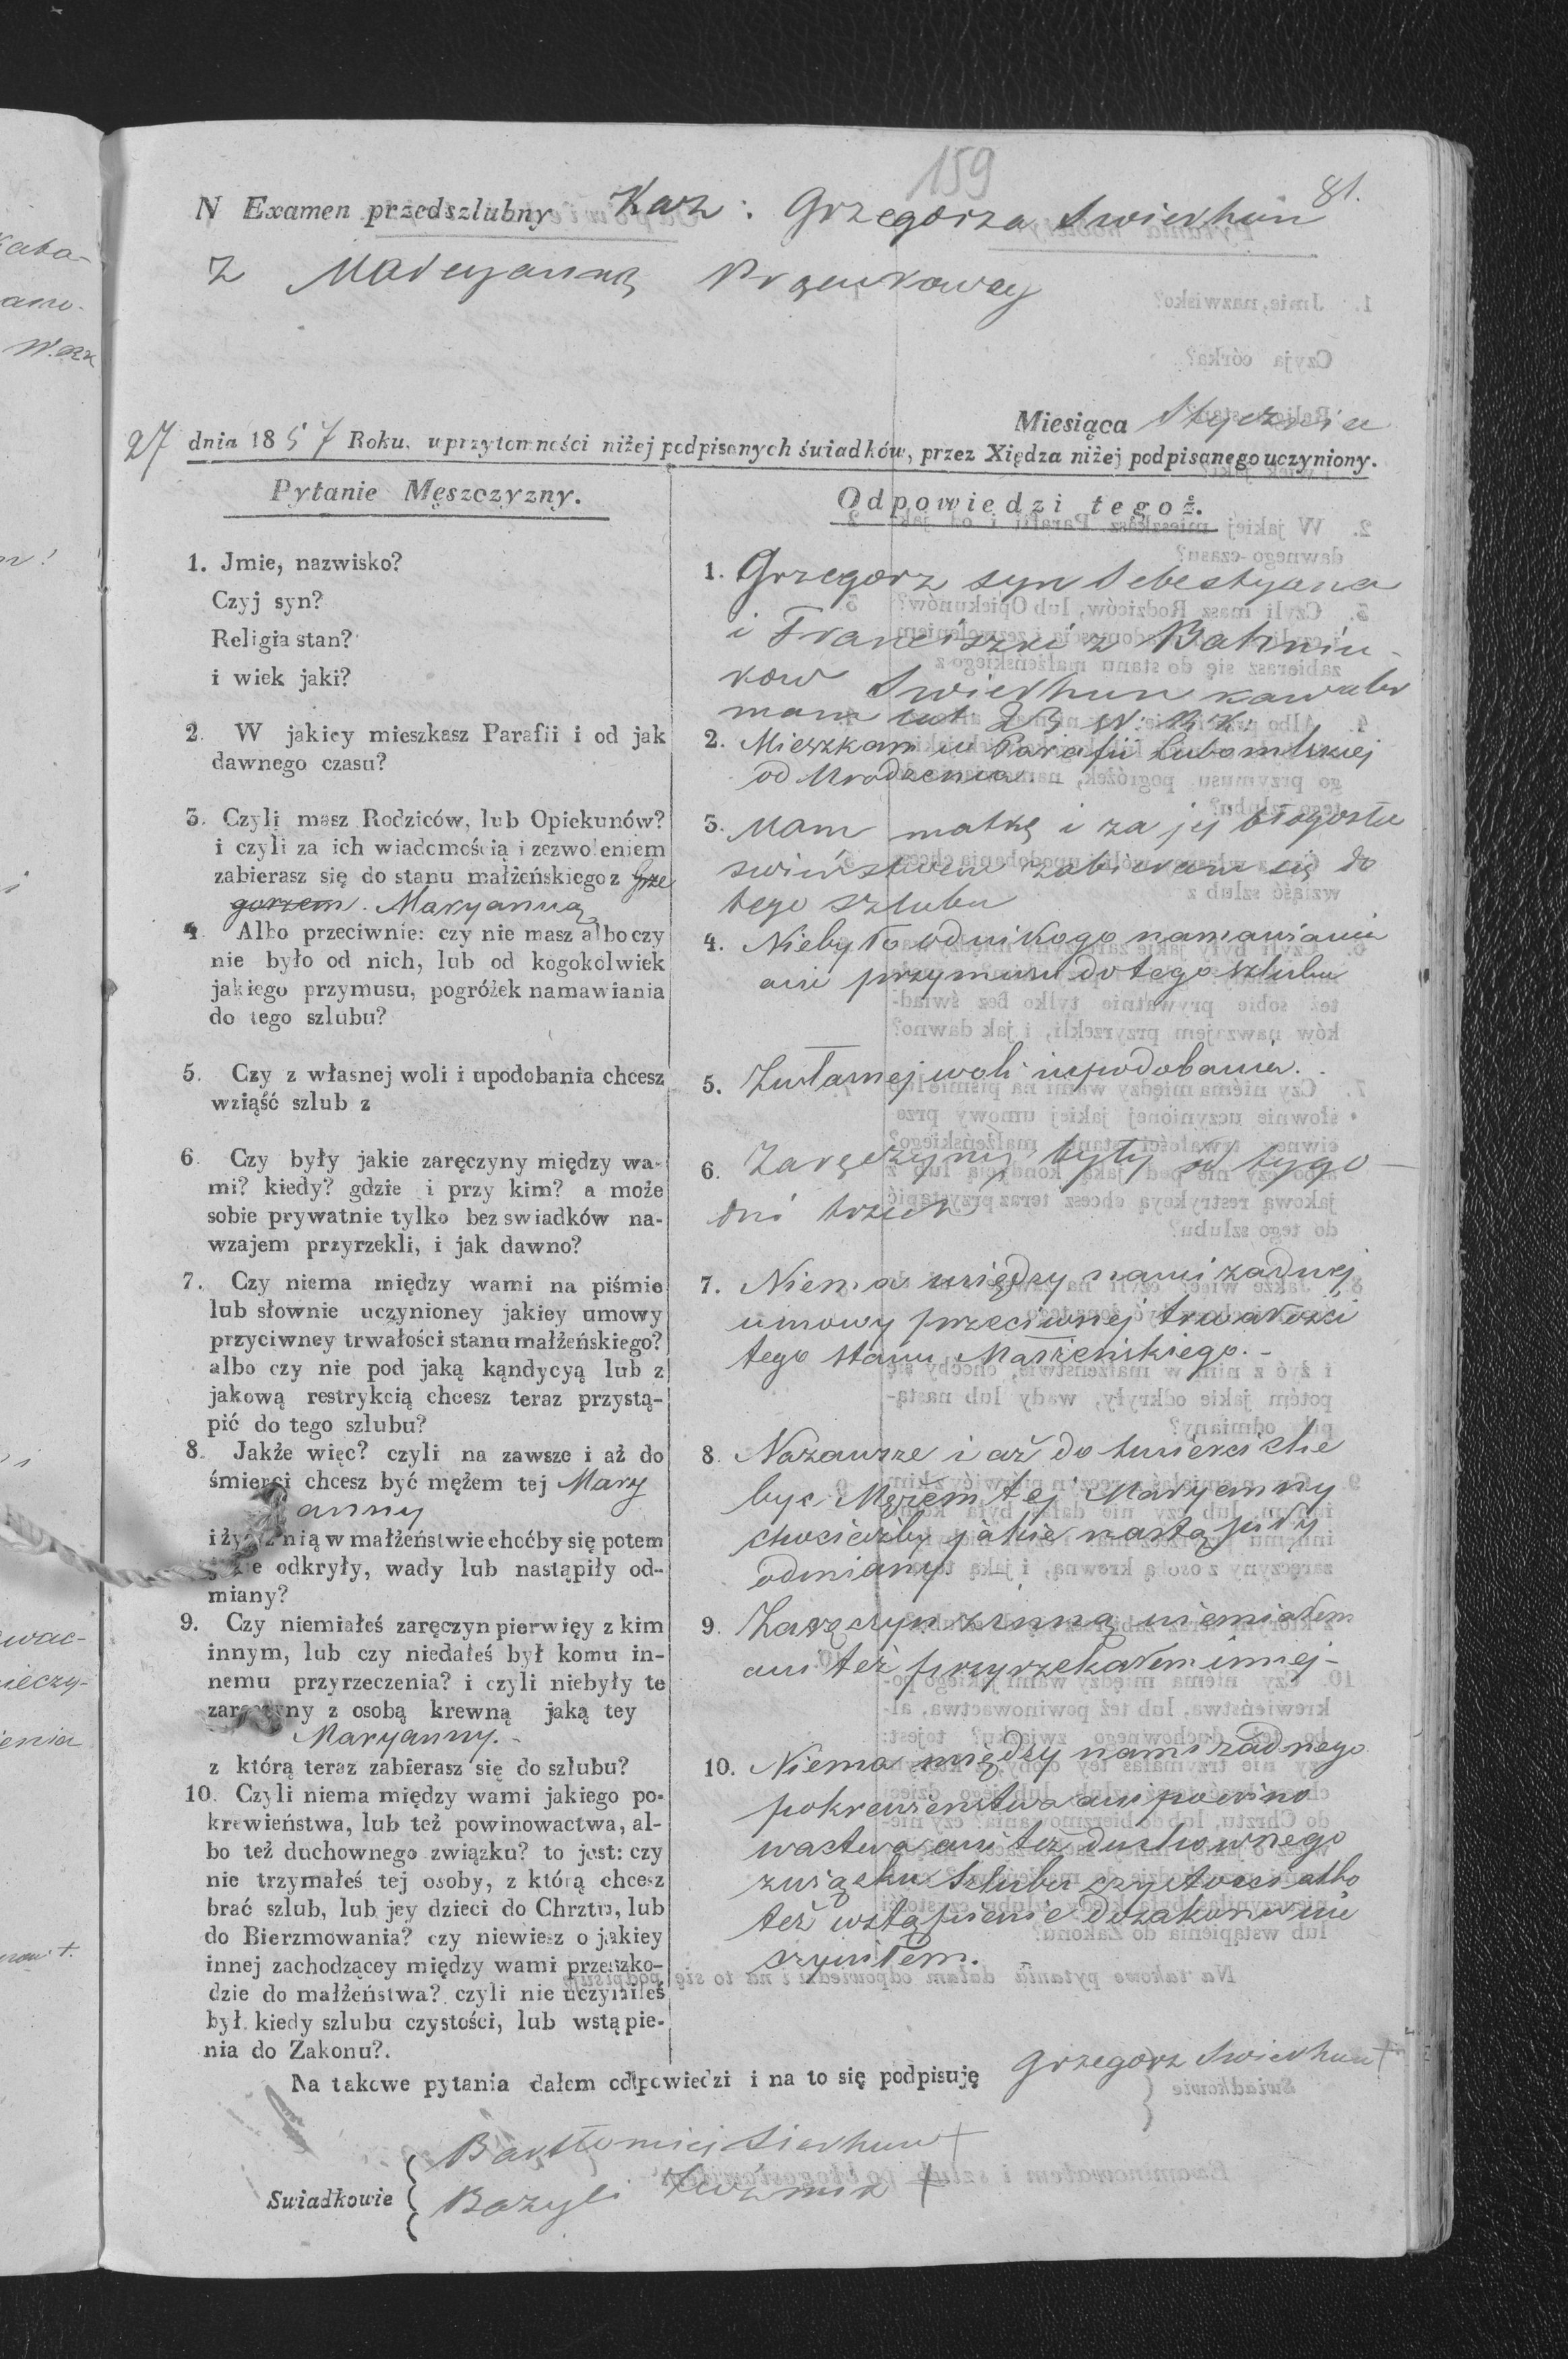 159
81.
N Examen przedszlubny Kaz: Grzegorza Swierhun
Z Maryanną
Miesiąca Stycznia
27 dnia 1857 Roku, uprzytomności niżej podpisanych świadków, przez Xiędza niżej podpisanego uczyniony.
Pytanie Męszczyzny.
1. Jmie, nazwisko?
Czyj syn?
Religia stan?
i wiek jaki?
2. W jakiey mieszkasz Parafii i od jak
dawnego czasu?
3. Czyli masz Rodziców, lub Opiekunów?
i czyli za ich wiadomością i zezwoleniem
zabierasz się do stanu małżeńskiego z Grze
gorzem. Maryanną
4. Albo przeciwnie: czy nie masz albo czy
nie było od nich, lub od kogokolwiek
jakiego przymusu, pogróżek namawiania
do tego szlubu?
5. Czy z własnej woli i upodobania chcesz
wziąść szlub z
6. Czy były jakie zaręczyny między wa-
mi? kiedy? gdzie i przy kim? a może
sobie prywatnie tylko bez swiadków na-
wzajem przyrzekli, i jak dawno?
7. Czy niema między wami na piśmie
lub słownie uczynioney jakiey umowy
przyciwney trwałości stanu małżeńskiego?
albo czy nie pod jaką kąndycyą lub z
jakową restrykcią chcesz teraz przystą-
pić do tego szlubu?
8. Jakże więc? czyli na zawsze i aż do
śmierci chcesz być mężem tej Mary
anny
i żyć z nią w małżeństwie choćby się potem
odkryły, wady lub nastąpiły od-
miany?
9. Czy niemiałeś zaręczyn pierwięy z kim
innym, lub czy niedałeś był komu in-
nemu przyrzeczenia? i czyli niebyły te
zaręczyny z osobą krewną jaką tey
Maryanny.-
z którą teraz zabierasz się do szlubu?
10. Czyli niema między wami jakiego po-
krewieństwa, lub też powinowactwa, al-
bo też duchownego związku? to jest: czy
nie trzymałeś tej osoby, z którą chcesz
brać szlub, lub jey dzieci do Chrztu, lub
do Bierzmowania? czy niewiesz o jakiey
innej zachodzącey między wami przeszko-
dzie do małżeństwa? czyli nie uczyniłeś
był kiedy szlubu czystości, lub wstąpie-
nia do Zakonu?.
Odpowiedzi tegoż.
1. Grzegorz syn Sebestyana
i Franciszki z
kow Swierhun kawaler
mam lat
2. Mieszkam w Parafii Lubomlskiej
od Urodzenia
3. Mam matkę i za jej błogosła
wieństwem zabieram się do
tego szlubu
4. Niebyło odnikogo namawiania
ani przymusu do tego szlubu
5. Zwłasnej woli iupodobania.
6. Zaręczyny były od tygo-
dni trzech
7. Niema między nami żadnej
umowy przeciwnej trwałości
tego stanu Małżeńskiego.-
8. Nazawsze i aż do śmierci chce
być Mężem tej Maryanny
chociażby jakie nastąpiły
odmiany
9. Zaręczyn zinną niemiałem
ani też przyrzekałem innej-
10. Niema między nami żadnego
pokrewieństwa ani powino
wactwa ani też duchownego
związku Szlubu czystości albo
też wstąpienie dozakonu nie
czyniłem.-
Na takowe pytania dałem odpowiedzi i na to się podpisuję Grzegorz Swierhun +
Swiadkowie
Bartłomiej Sierhun +
Bazyli +